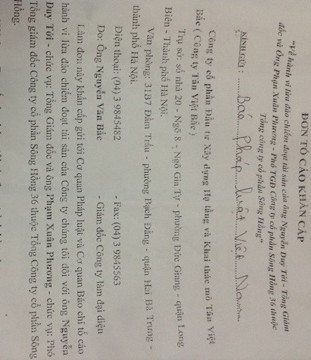 ĐƠN TỐ CÁO KHẨN CẤP
"Vv hành vi lừa đảo chiếm đoạt tài sản của ông Nguyễn Duy Tới - Tổng Giám
đốc và Ông Phạm Xuân Phương - Phó TGĐ Công ty cổ phần Sông Hồng 36 thuộc
Tổng công ty cổ phần Sông Hồng"
KÍNH GỬI: Báo Pháp luật Việt Nam
Công ty cổ phần Đầu tư Xây dựng Hạ tầng và Khai thác mỏ Tân Việt
Bắc ( Công ty Tân Việt Bắc )
Trụ sở: số nhà 20 - Ngõ 8 - Ngô Gia Tự - phường Đức Giang - quận Long
Biên - Thành phố Hà Nội.
Văn phòng: 31B7 Đầm Trấu - phường Bạch Đằng - quận Hai Bà Trưng -
thành phố Hà Nội.
Điện thoại: (04) 3 9845482 - Fax: (04) 3 9845563
Do: Ông Nguyễn Văn Bắc - Giám đốc Công ty làm đại diện
Làm đơn này khẩn cấp gửi tới Cơ quan Pháp luật và Cơ quan Báo chí tố cáo
hành vi lừa đảo chiếm đoạt tài sản của Công ty chúng tôi đối với ông Nguyễn
Duy Tới - chức vụ: Tổng Giám đốc và ông Phạm Xuân Phương - chức vụ: Phó
Tổng giám đốc Công ty cổ phần Sông Hồng 36 thuộc Tổng Công ty cổ phần Sông
Hồng.